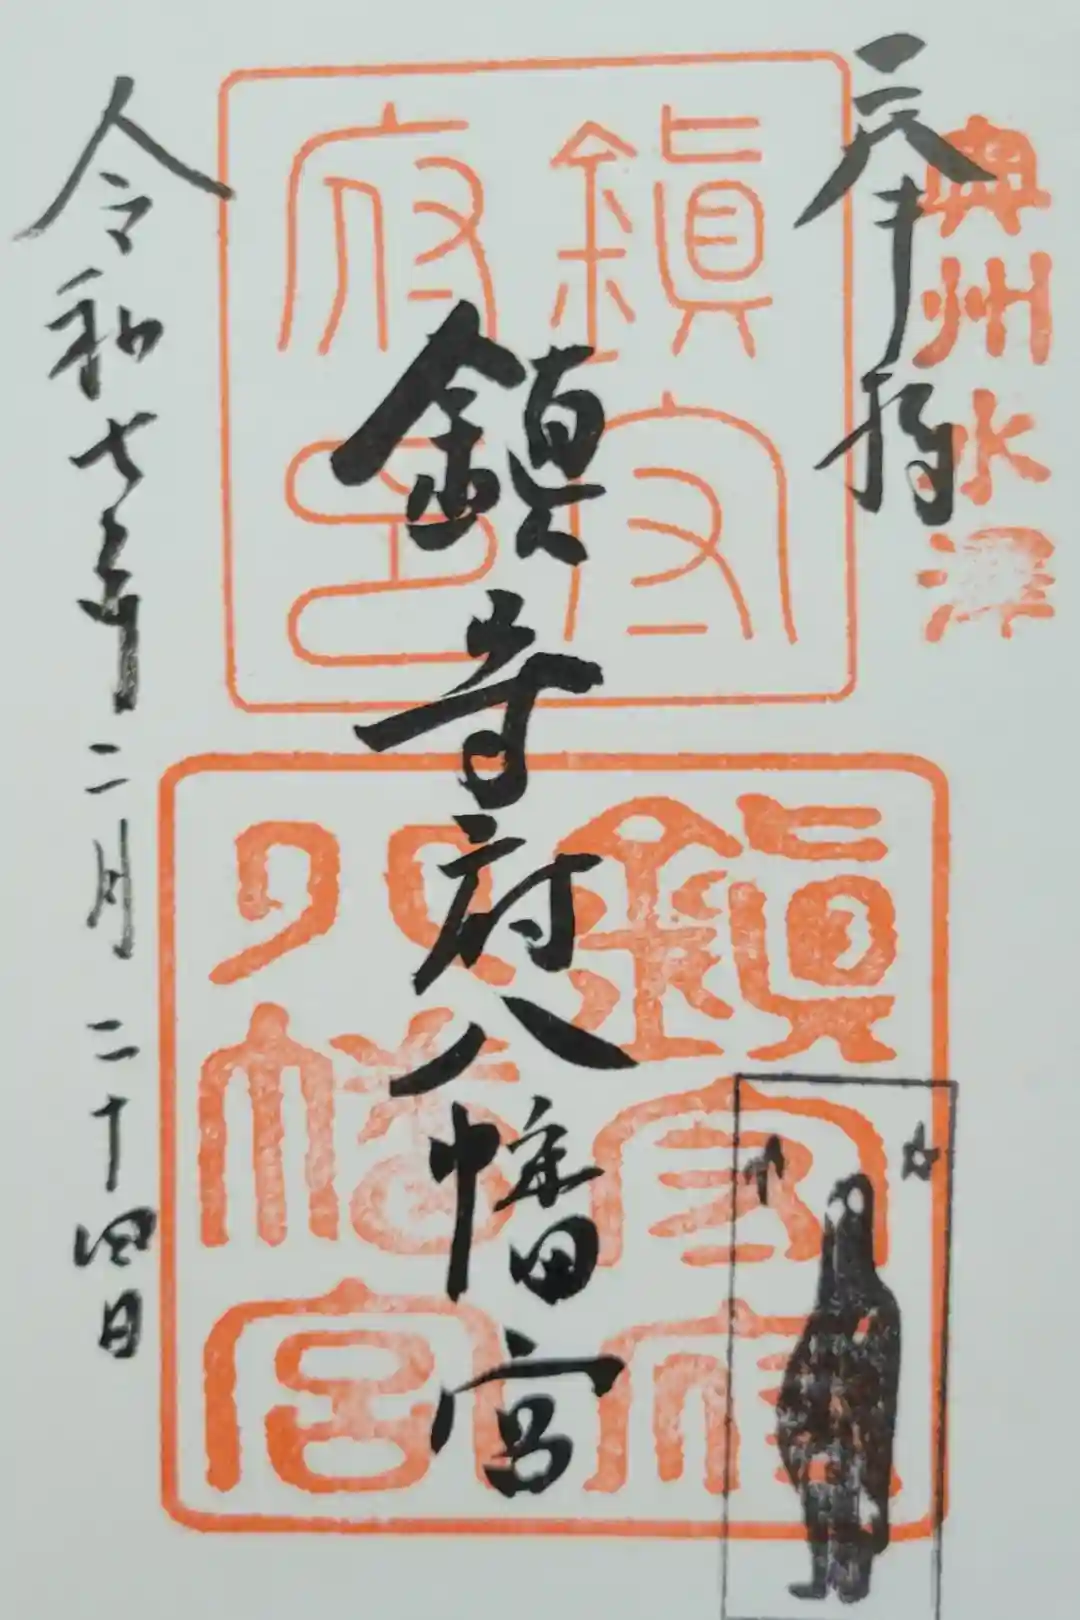 奉拝
奥州水澤
鎮守府印
鎮守府八幡宮
鎮守府八幡宮
令和七年二月二十四日